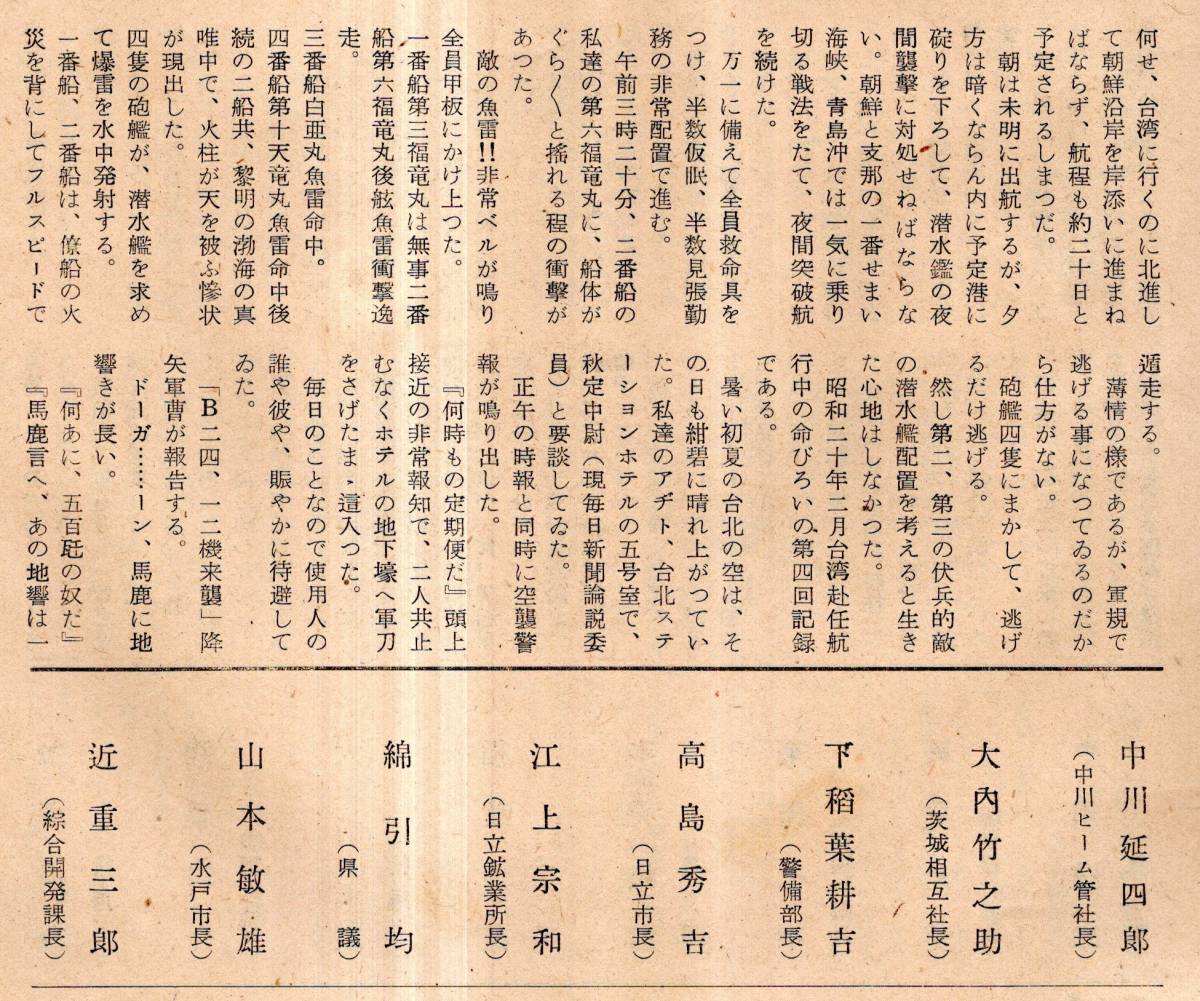 何せ、台湾に行くのに北進し
て朝鮮沿岸を岸添いに進まね
ばならず、航程も約二十日と
予定されるしまつだ。
朝は未明に出航するが、夕
方は暗くならん内に予定港に
碇りを下ろして、潜水鑑の夜
間襲撃に対処せねばならな
い。朝鮮と支那の一番せまい
海峡、青島沖では一気に乗り
切る戦法をたて、夜間突破航
を続けた。
万一に備えて全員救命具を
つけ、半数仮眠、半数見張勤
務の非常配置で進む。
午前三時二十分、二番船の
私達の第六福竜丸に、船体が
ぐら〱と搖れる程の衝撃が
あつた。
敵の魚雷!!非常ベルが鳴り
全員甲板にかけ上つた。
一番船第三福竜丸は無事二番
船第六福竜丸後舷魚雷衝撃逸
走。
三番船白亜丸魚雷命中。
四番船第十天竜丸魚雷命中後
続の二船共、黎明の渤海の真
唯中で、火柱が天を被ふ惨状
が現出した。
四隻の砲艦が、潜水艦を求め
て爆雷を水中発射する。
一番船、二番船は、僚船の火
災を背にしてフルスピードで
遁走する。
薄情の様であるが、軍規で
逃げる事になつてゐるのだか
ら仕方がない。
砲艦四隻にまかして、逃げ
るだけ逃げる。
然し第二、第三の伏兵的敵
の潜水艦配置を考えると生き
た心地はしなかつた。
昭和二十年二月台湾赴任航
行中の命びろいの第四回記録
である。
暑い初夏の台北の空は、そ
の日も紺碧に晴れ上がつてい
た。私達のアヂト、台北ステ
ーションホテルの五号室で、
秋定中尉（現毎日新聞論説委
員）と要談してゐた。
正午の時報と同時に空襲警
報が鳴り出した。
『何時もの定期便だ』頭上
接近の非常報知で、二人共止
むなくホテルの地下壕へ軍刀
をさげたまゝ這入つた。
毎日のことなので使用人の
誰や彼や、賑やかに待避して
ゐた。
「B二四、一二機来襲」降
矢軍曹が報告する。
ドーガ……ーン、馬鹿に地
響きが長い。
『何あに、五百瓩の奴だ』
『馬鹿言へ、あの地響は一
中川延四郎
（中川ヒーム管社長）
大内竹之助
（茨城相互社長）
下稲葉耕吉
（警備部長）
高島秀吉
（日立市長）
江上宗和
（日立鉱業所長）
綿引均
（県議）
山本敏雄
（水戸市長）
近重三郎
（綜合開発課長）